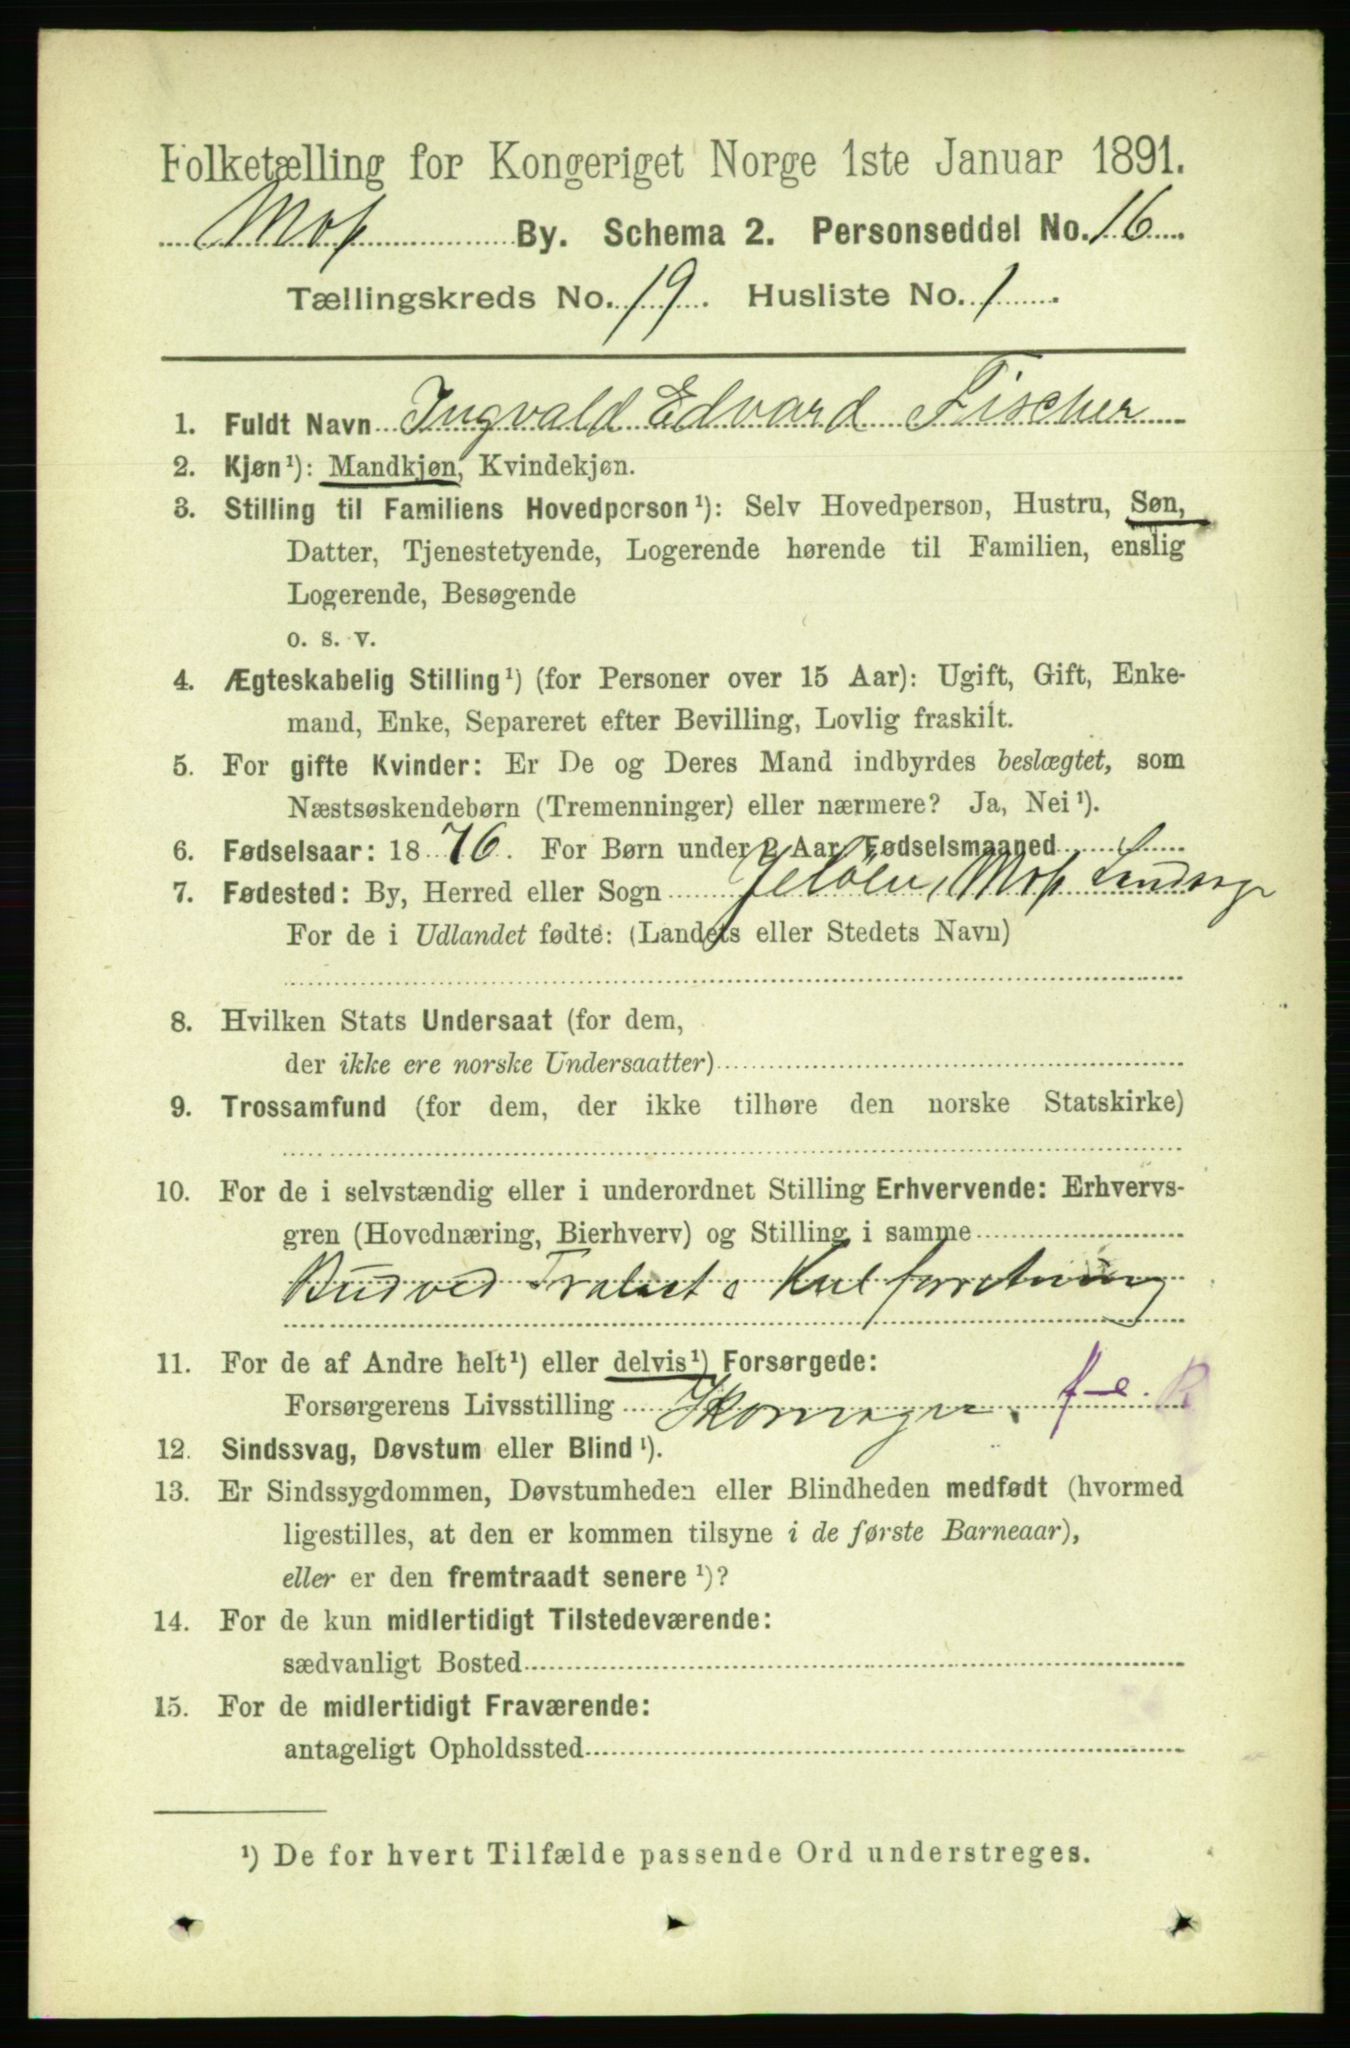 Folketælling for Kongeriget Norge 1ste Januar 1891.
Moss By. Schema 2. Personseddel No. 16
Tællingskreds No. 19. Husliste No. 1.
1. Fuldt Navn Ingvald Edvard Fischer
2. Kjøn¹): Mandkjøn, Kvindekjøn.
3. Stilling til Familiens Hovedperson¹): Selv Hovedperson, Hustru, Søn,
Datter, Tjenestetyende, Logerende hørende til Familien, enslig
Logerende, Besøgende
o. s. v.
4. Ægteskabelig Stilling¹) (for Personer over 15 Aar): Ugift, Gift, Enke-
mand, Enke, Separeret efter Bevilling, Lovlig fraskilt.
5. For gifte Kvinder: Er De og Deres Mand indbyrdes beslægtet, som
Næstsøskendebørn (Tremenninger) eller nærmere? Ja, Nei¹).
6. Fødselsaar: 1876. For Børn under 2 Aar, Fødselsmaaned
7. Fødested: By, Herred eller Sogn Jeløen, Moss Landsogn
For de i Udlandet fødte: (Landets eller Stedets Navn)
8. Hvilken Stats Undersaat (for dem,
der ikke ere norske Undersaatter)
9. Trossamfund (for dem, der ikke tilhøre den norske Statskirke)
10. For de i selvstændig eller i underordnet Stilling Erhvervende: Erhvervs-
gren (Hovednæring, Bierhverv) og Stilling i samme
Bud ved Trælast & Kulforretning
11. For de af Andre helt¹) eller delvis¹) Forsørgede:
Forsørgerens Livsstilling Skomager.
12. Sindssvag, Døvstum eller Blind¹).
13. Er Sindssygdommen, Døvstumheden eller Blindheden medfødt (hvormed
ligestilles, at den er kommen tilsyne i de første Barneaar),
eller er den fremtraadt senere¹)?
14. For de kun midlertidigt Tilstedeværende:
sædvanligt Bosted
15. For de midlertidigt Fraværende:
antageligt Opholdssted
¹) De for hvert Tilfælde passende Ord understreges.